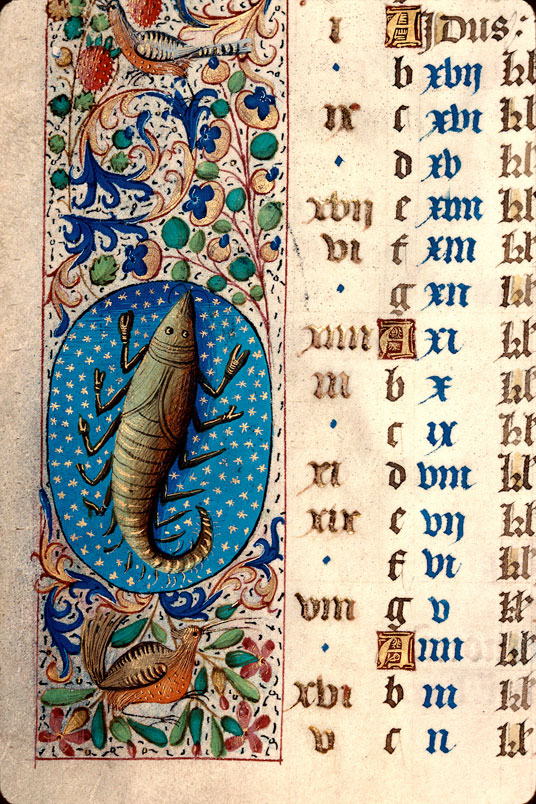 i A Jdus :
· b xvij kl
ix c xvi kl
· d xv kl
xvij e xiiii kl
vi f xiii kl
· g xii kl
xiiii A xi kl
iii b x kl
· c ix kl
xi d viii kl
xix e vij kl
· f vi kl
viii g v kl
· A iiii kl
xvi b iii kl
v c ii kl